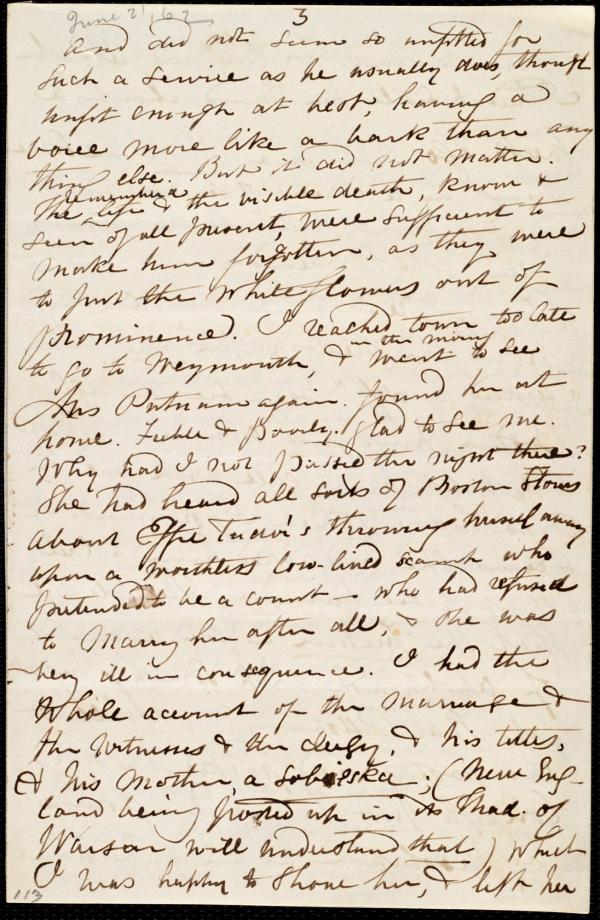 June 21, 62
3
and did not seem so unfitted for
such a service as he usually does, though
unfit enough at best, having a
voice more like a bark than any
thing else. But it did not matter.
remembered
The life & the visible death, know &
seen of all present, were sufficient to
make him forgotten, as they were
to put the white flowers out of
prominence. I reached town too late
in the morning
to go to Weymouth, & went to see
Mrs Putnam again. found her at
home. Feeble & poorly. glad to see me.
Why had I not passed the night there?
She had heard all sorts of Boston stories
about Effie Tudor's throwing herself away
upon a worthless low-lived scamp who
pretended to be a count - who had refused
to marry her after all, & she was
very ill in consequence. I had the
whole account of the marriage &
the witnesses & the clergy, & his titles,
& his mother, a Sobieska; (New Eng-
land being posted up in its Thad. of
Warsaw will understand that) which
I was happy to show her, & left her
113